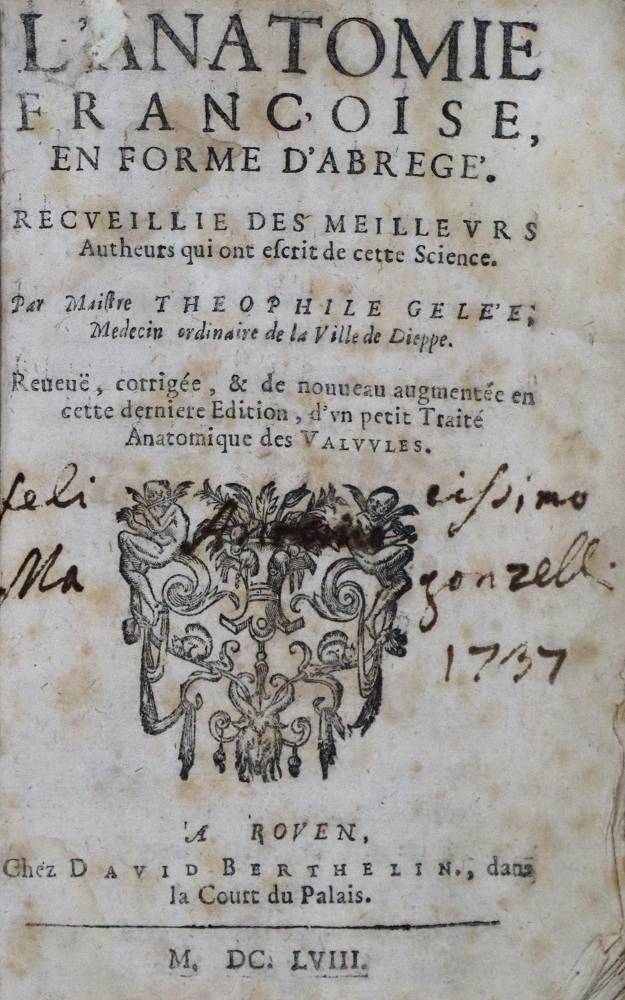 L'ANATOMIE
FRANÇOISE,
EN FORME D'ABREGE'.
RECVEILLIE DES MEILLEVRS
Autheurs qui ont eſcrit de cette Science.
Par Maiſtre THEOPHILE GELE'E;
Medecin ordinaire de la Ville de Dieppe.
Reueuë, corrigée, & de nouueau augmentée en
cette derniere Edition, d'vn petit Traité
Anatomique des VALVVLES.
feli ciſsimo
Ma gonzelli
1737
A ROVEN,
Chez DAVID BERTHELIN., dans
la Court du Palais.
M. DC. LVIII.